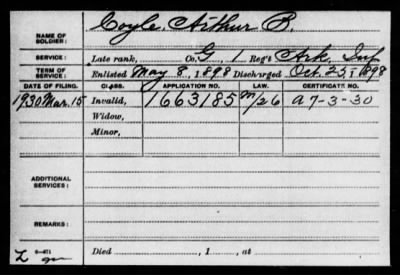 NAME OF SOLDIER: Coyle, Arthur B.
SERVICE: Late rank, Co. G, 1 Reg't Ark. Inf
TERM OF SERVICE: Enlisted May 8, 1898 Discharged Oct. 25, 1898
DATE OF FILING. CLASS. APPLICATION NO. LAW. CERTIFICATE NO.
1930 Mar. 15 Invalid, 1663185 m/26 a 7-3-30
Widow,
Minor,
ADDITIONAL SERVICES:
REMARKS:
L 6-871 Died , 1 , at